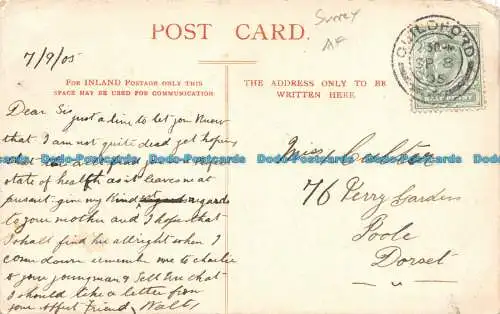 POST CARD.
Surrey
7/9/05
GUILDFORD
SP 8
05
FOR INLAND POSTAGE ONLY THIS
SPACE MAY BE USED FOR COMMUNICATION
THE ADDRESS ONLY TO BE
WRITTEN HERE
Dear Sis
just a line to let you know
that I am not quite dead yet hoping
state of health as it leaves me at
present give my kind regards
to your mother and I hope that
I shall find her allright when I
come down remember me to charlie
& your youngman & tell him that
I should like a letter from
your affect Friend Walt
Miss Coulter
76 Perry Gardens
Poole
Dorset
Dodo-Postcards Dodo-Postcards Dodo-Postcards Dodo-Postcards